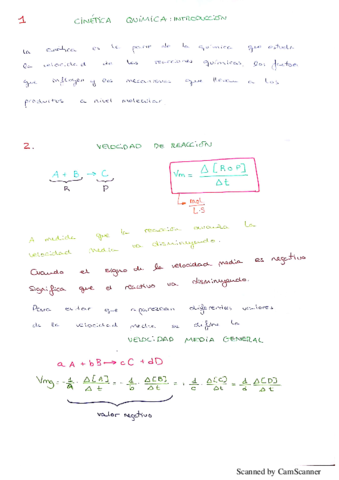 1 CINÉTICA QUÍMICA: INTRODUCCIÓN
La cinética es la parte de la química que estudia
la velocidad de las reacciones químicas, los factores
que influyen y los mecanismos que llevan a los
productos a nivel molecular.
2. VELOCIDAD DE REACCIÓN
A + B → C
R P
Vm = Δ[R o P] / Δt
mol / L·S
A medida que la reacción avanza la
velocidad media va disminuyendo.
Cuando el signo de la velocidad media es negativo
significa que el reactivo va disminuyendo.
Para evitar que aparezcan diferentes valores
de la velocidad media se define la
VELOCIDAD MEDIA GENERAL
aA + bB → cC + dD
Vmg = -1/a · Δ[A]/Δt = -1/b · Δ[B]/Δt = +1/c · Δ[C]/Δt = 1/d · Δ[D]/Δt
valor negativo
Scanned by CamScanner